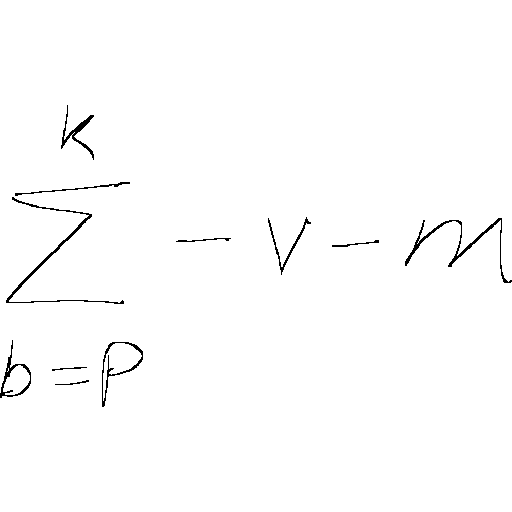 \sum_{b=p}^{k} -v-m